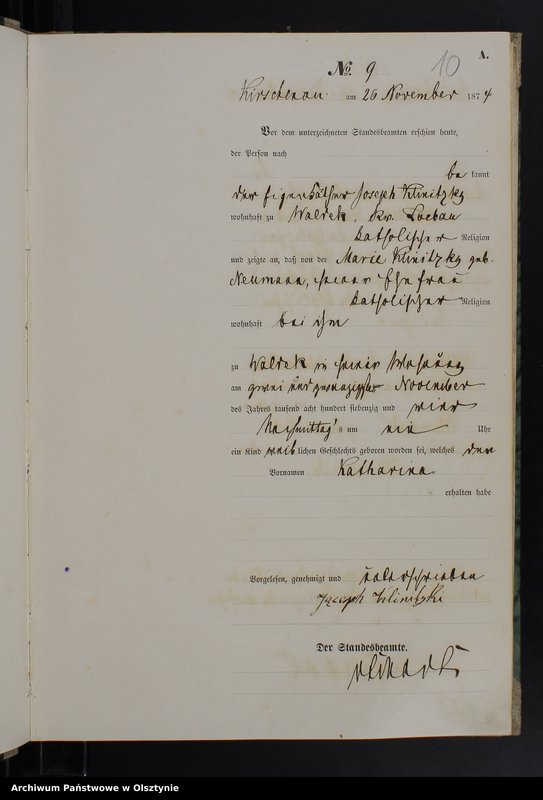 A.
10
No. 9
Kirschenau am 26 November 1874
Vor dem unterzeichneten Standesbeamten erschien heute,
der Person nach
be kannt
der Eigenkäthner Joseph Klinitzky
wohnhaft zu Waldek, Kr. Loebau
katholischer Religion
und zeigte an, daß von der Marie Klinitzky geb.
Neumann, seiner Ehefrau
katholischer Religion
wohnhaft bei ihm
zu Waldek in seiner Wohnung
am zwei und zwanzigsten November
des Jahres tausend acht hundert siebenzig und vier
Nachmittag's um ein Uhr
ein Kind weib lichen Geschlechts geboren worden sei, welches den
Vornamen Katharina
erhalten habe
Vorgelesen, genehmigt und unterschrieben
Joseph Klinitzki
Der Standesbeamte.
Archiwum Państwowe w Olsztynie